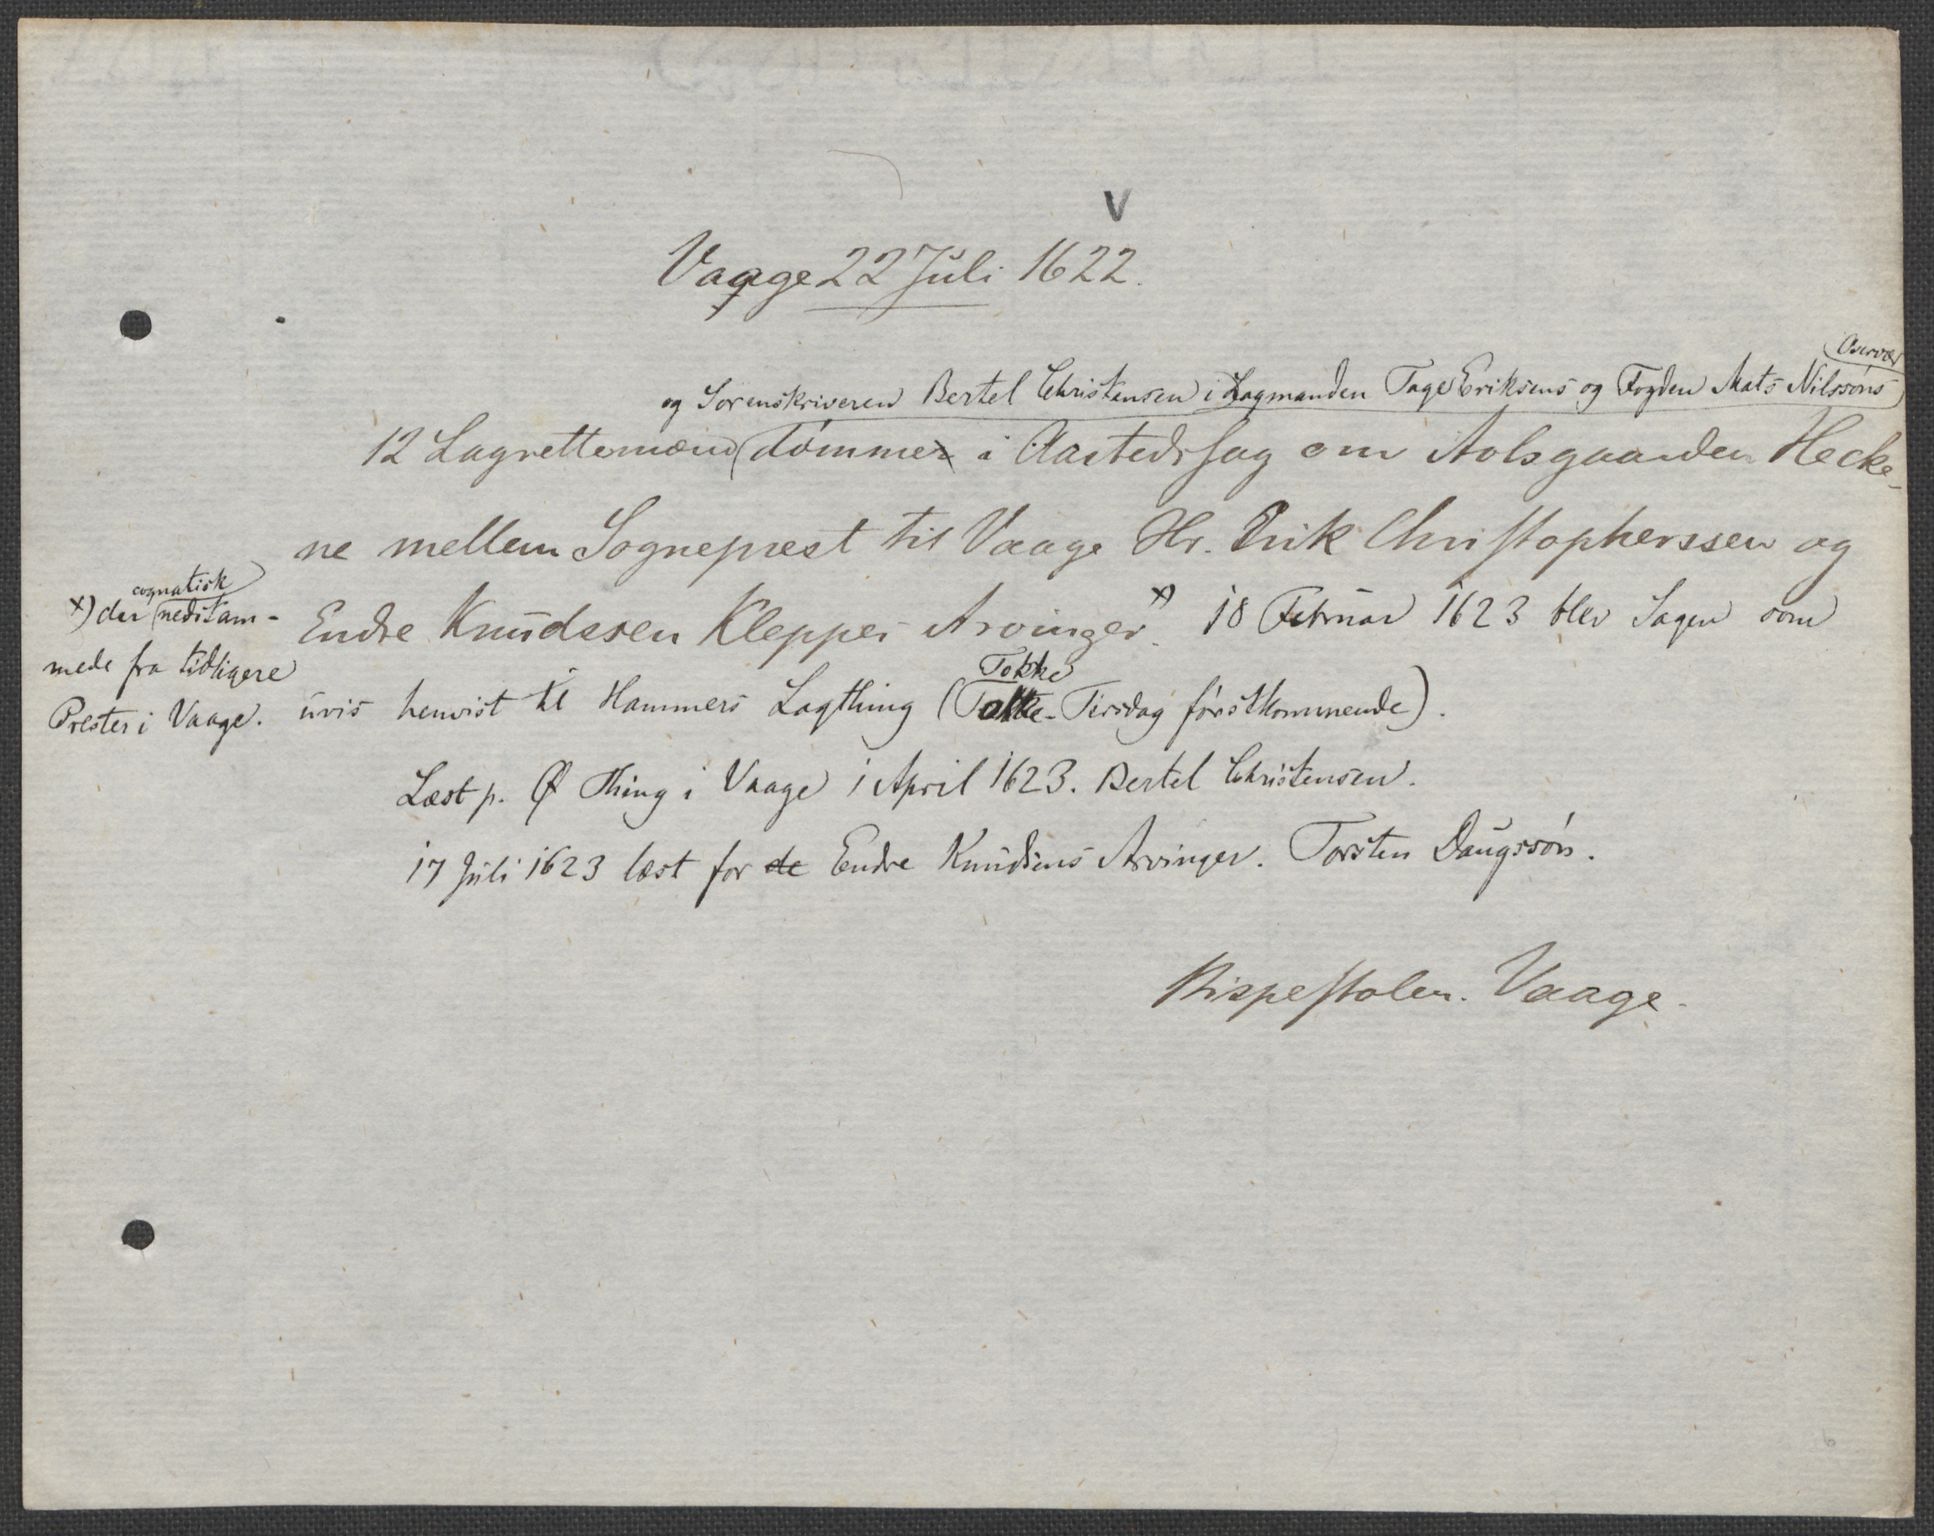 V
Vaage 22 Juli 1622.
Overvær
og Sorenskriveren Bertel Christensen i Lagmanden Tage Eriksens og Fogden Mats Nilssøns
12 Lagrettemænd dømmer i Aastedssag om Aolsgaarden Hecke-
ne mellem Sogneprest til Vaage Hr. Erik Christopherssen og
Endre Knudssen Kleppes Arvinger x). 18 Februar 1623 blev Sagen som
uvis henvist til Hammers Lagthing (Tokke Tirsdag førstkommende).
Tokke
Læst p. Ø Thing i Vaage i April 1623. Bertel Christensen.
17 Juli 1623 læst for de Endre Knudsens Arvinger. Torsten Daugssøn.
Bispestolen. Vaage.
cognatisk
x) der nedstam-
mede fra tidligere
Prester i Vaage.